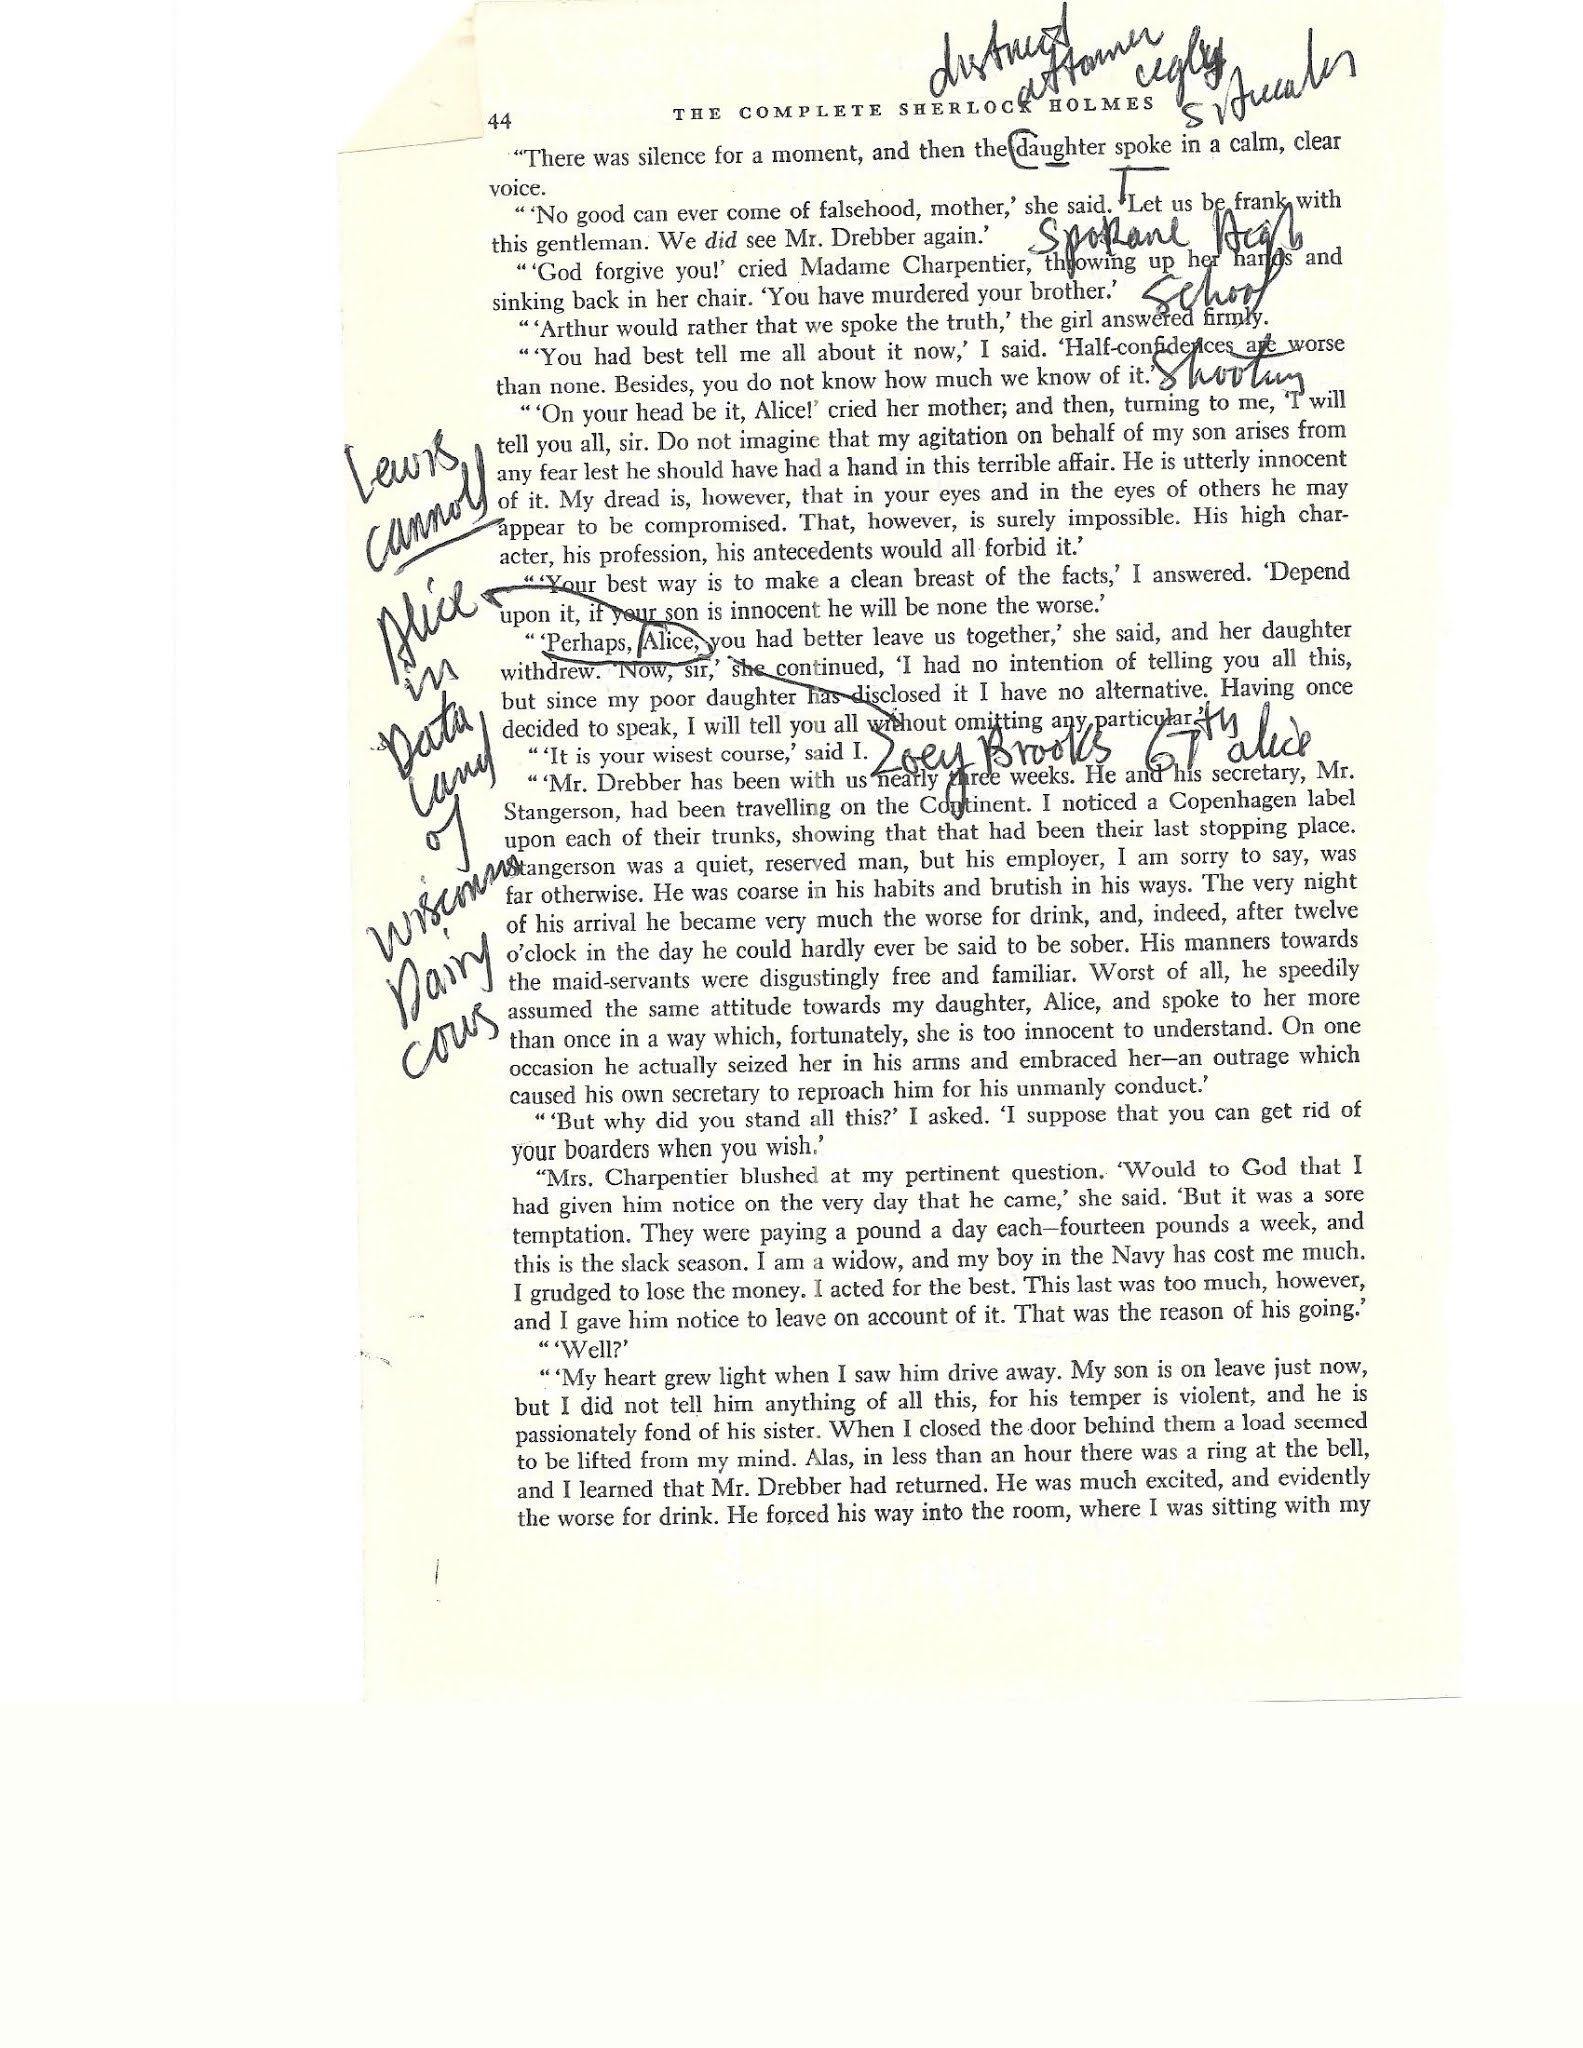 district
44
THE COMPLETE SHERLOCK HOLMES
“There was silence for a moment, and then the daughter spoke in a calm, clear
voice.
“ ‘No good can ever come of falsehood, mother,’ she said. ‘Let us be frank with
this gentleman. We did see Mr. Drebber again.’
Spokane High
“ ‘God forgive you!’ cried Madame Charpentier, throwing up her hands and
sinking back in her chair. ‘You have murdered your brother.’
School
“ ‘Arthur would rather that we spoke the truth,’ the girl answered firmly.
“ ‘You had best tell me all about it now,’ I said. ‘Half-confidences are worse
than none. Besides, you do not know how much we know of it.’
Shooting
“ ‘On your head be it, Alice!’ cried her mother; and then, turning to me, ‘I will
tell you all, sir. Do not imagine that my agitation on behalf of my son arises from
any fear lest he should have had a hand in this terrible affair. He is utterly innocent
of it. My dread is, however, that in your eyes and in the eyes of others he may
appear to be compromised. That, however, is surely impossible. His high char-
acter, his profession, his antecedents would all forbid it.’
“ ‘Your best way is to make a clean breast of the facts,’ I answered. ‘Depend
upon it, if your son is innocent he will be none the worse.’
“ ‘Perhaps, Alice, you had better leave us together,’ she said, and her daughter
withdrew. ‘Now, sir,’ she continued, ‘I had no intention of telling you all this,
but since my poor daughter has disclosed it I have no alternative. Having once
decided to speak, I will tell you all without omitting any particular.’
“ ‘It is your wisest course,’ said I.
Zoey Brooks 67th alice
“ ‘Mr. Drebber has been with us nearly three weeks. He and his secretary, Mr.
Stangerson, had been travelling on the Continent. I noticed a Copenhagen label
upon each of their trunks, showing that that had been their last stopping place.
Stangerson was a quiet, reserved man, but his employer, I am sorry to say, was
far otherwise. He was coarse in his habits and brutish in his ways. The very night
of his arrival he became very much the worse for drink, and, indeed, after twelve
o’clock in the day he could hardly ever be said to be sober. His manners towards
the maid-servants were disgustingly free and familiar. Worst of all, he speedily
assumed the same attitude towards my daughter, Alice, and spoke to her more
than once in a way which, fortunately, she is too innocent to understand. On one
occasion he actually seized her in his arms and embraced her—an outrage which
caused his own secretary to reproach him for his unmanly conduct.’
“ ‘But why did you stand all this?’ I asked. ‘I suppose that you can get rid of
your boarders when you wish.’
“Mrs. Charpentier blushed at my pertinent question. ‘Would to God that I
had given him notice on the very day that he came,’ she said. ‘But it was a sore
temptation. They were paying a pound a day each—fourteen pounds a week, and
this is the slack season. I am a widow, and my boy in the Navy has cost me much.
I grudged to lose the money. I acted for the best. This last was too much, however,
and I gave him notice to leave on account of it. That was the reason of his going.’
“ ‘Well?’
“ ‘My heart grew light when I saw him drive away. My son is on leave just now,
but I did not tell him anything of all this, for his temper is violent, and he is
passionately fond of his sister. When I closed the door behind them a load seemed
to be lifted from my mind. Alas, in less than an hour there was a ring at the bell,
and I learned that Mr. Drebber had returned. He was much excited, and evidently
the worse for drink. He forced his way into the room, where I was sitting with my
Lewis
Alice
in
Data
Land
of
Wisconsin
Dairy
cows